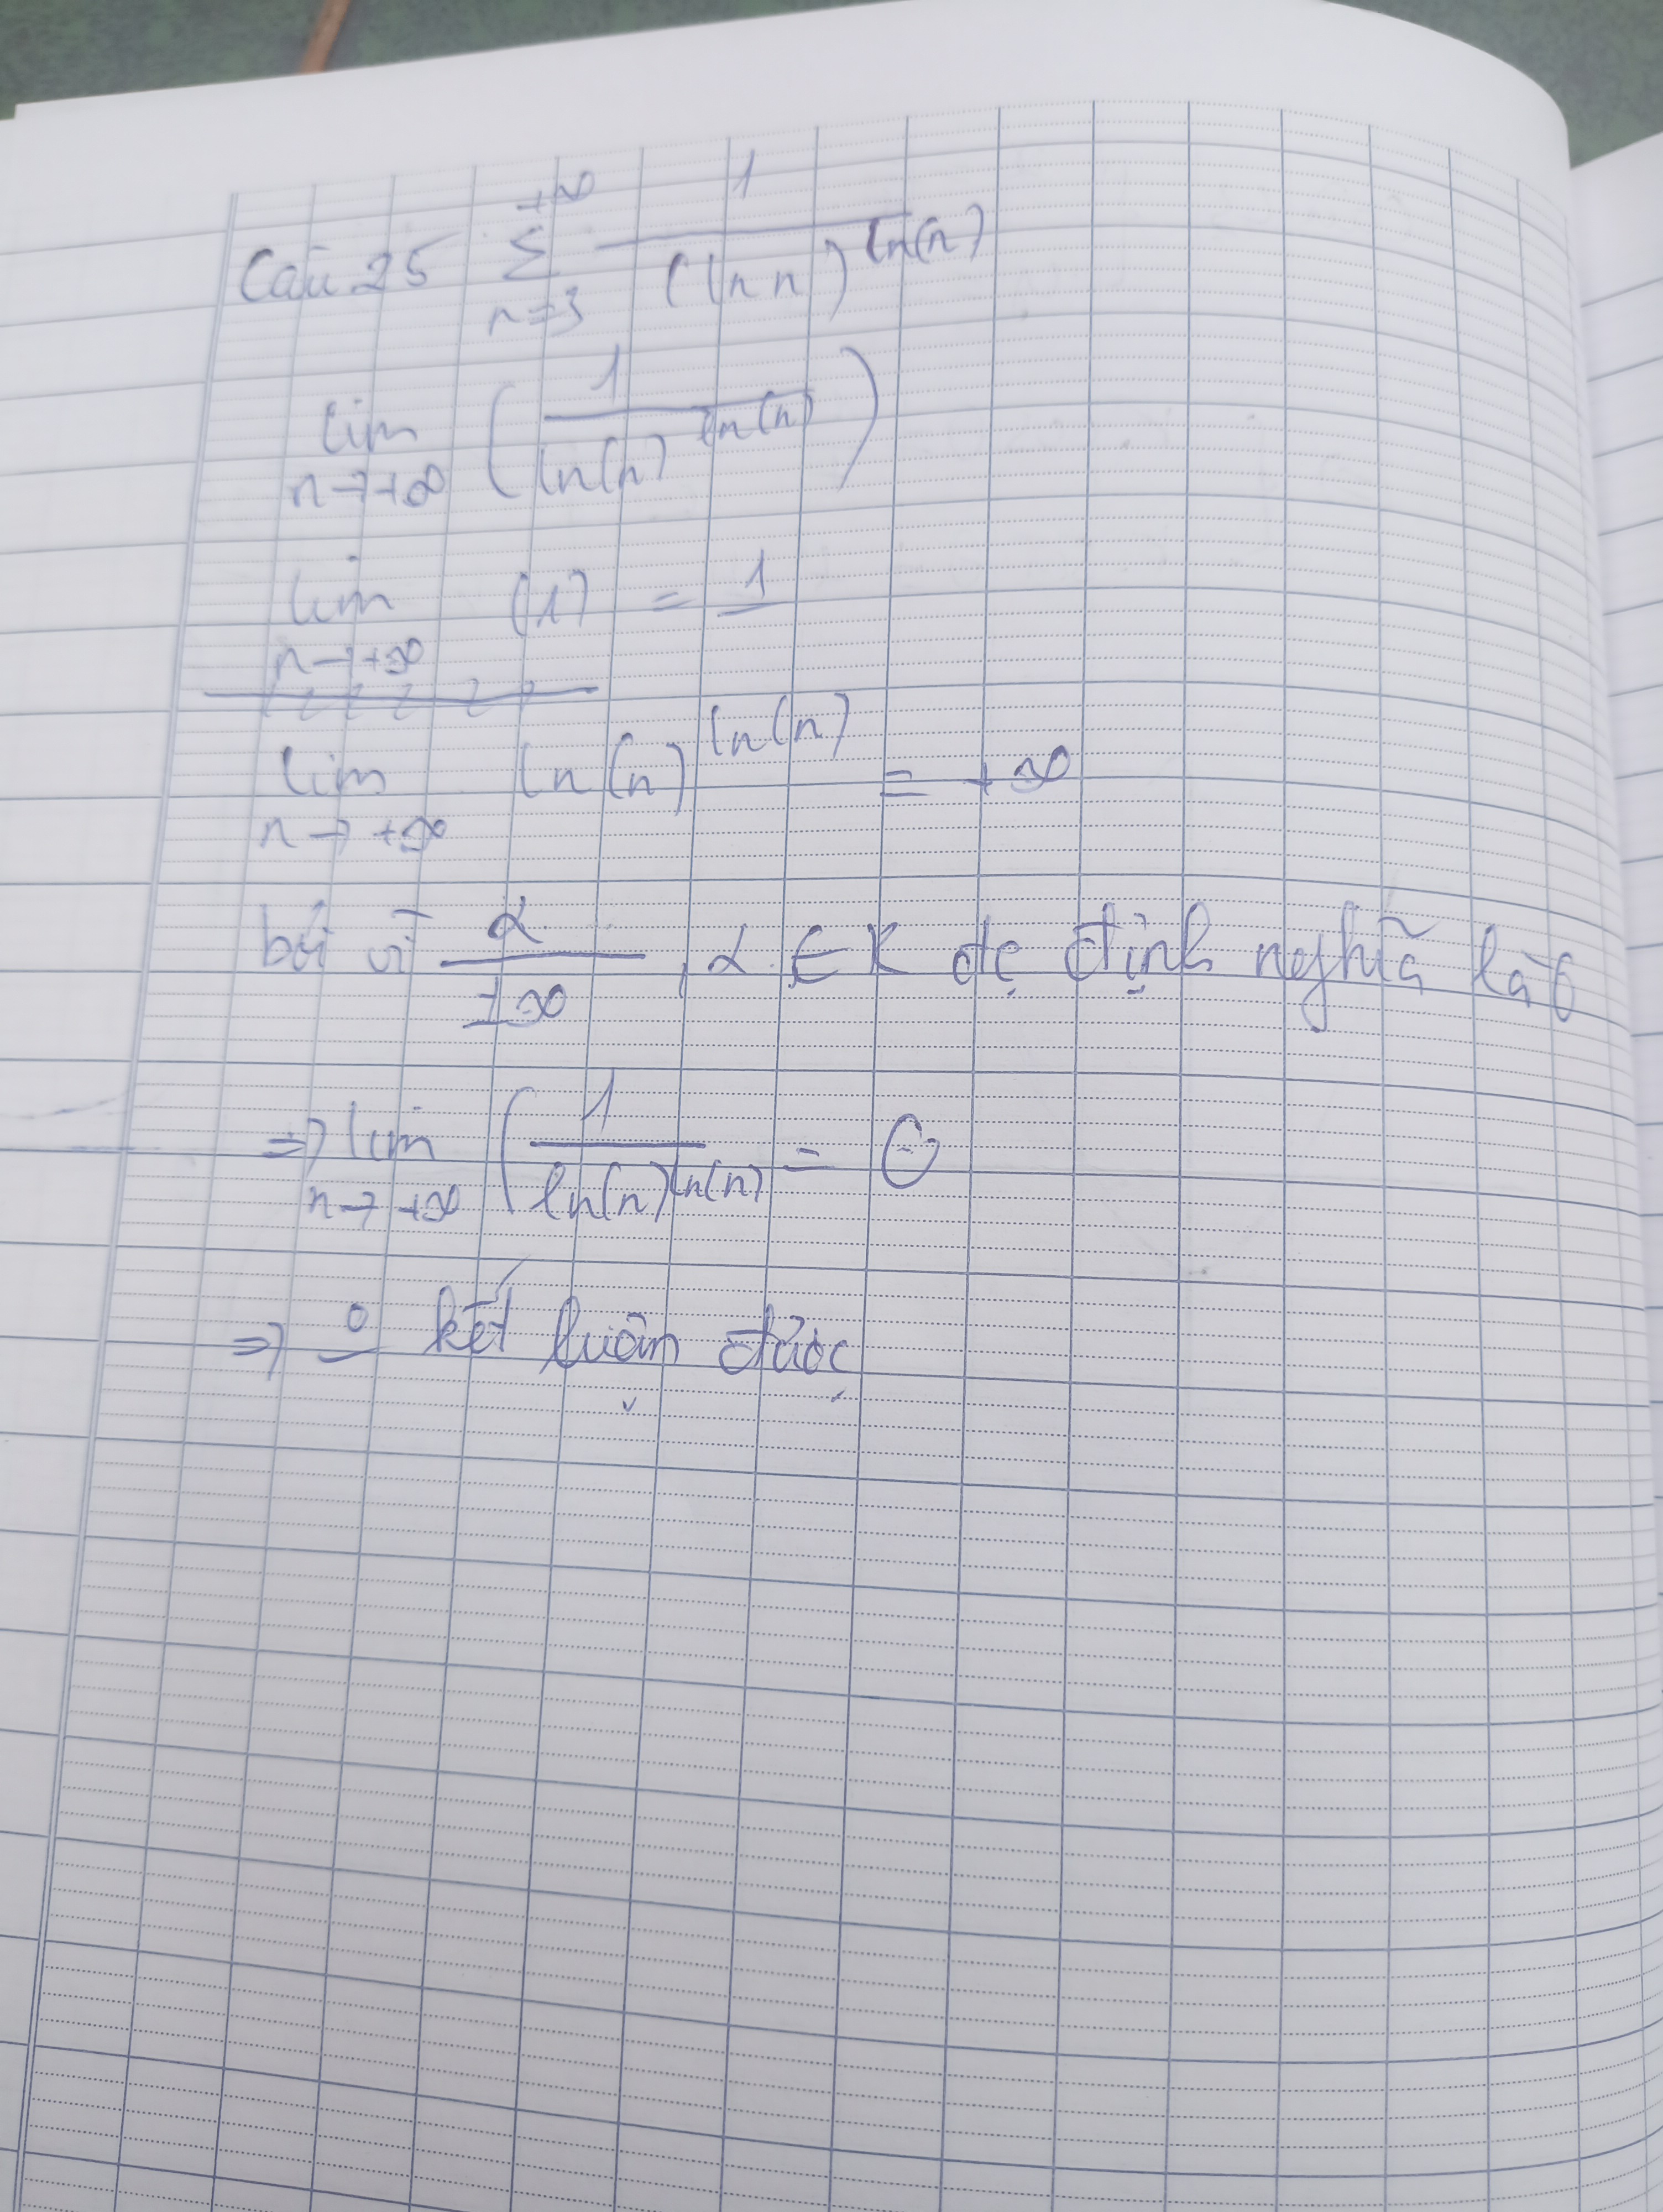 Câu 25 +∞ Σ n=3 1/(ln n)^ln(n)
lim n→+∞ (1/ln(n)^ln(n))
lim n→+∞ (1) = 1
lim n→+∞ ln(n)^ln(n) = +∞
bởi vì α/±∞, α ∈ K đc định nghĩa là 0
⇒ lim n→+∞ (1/ln(n)^ln(n) = 0
⇒ kết luận được